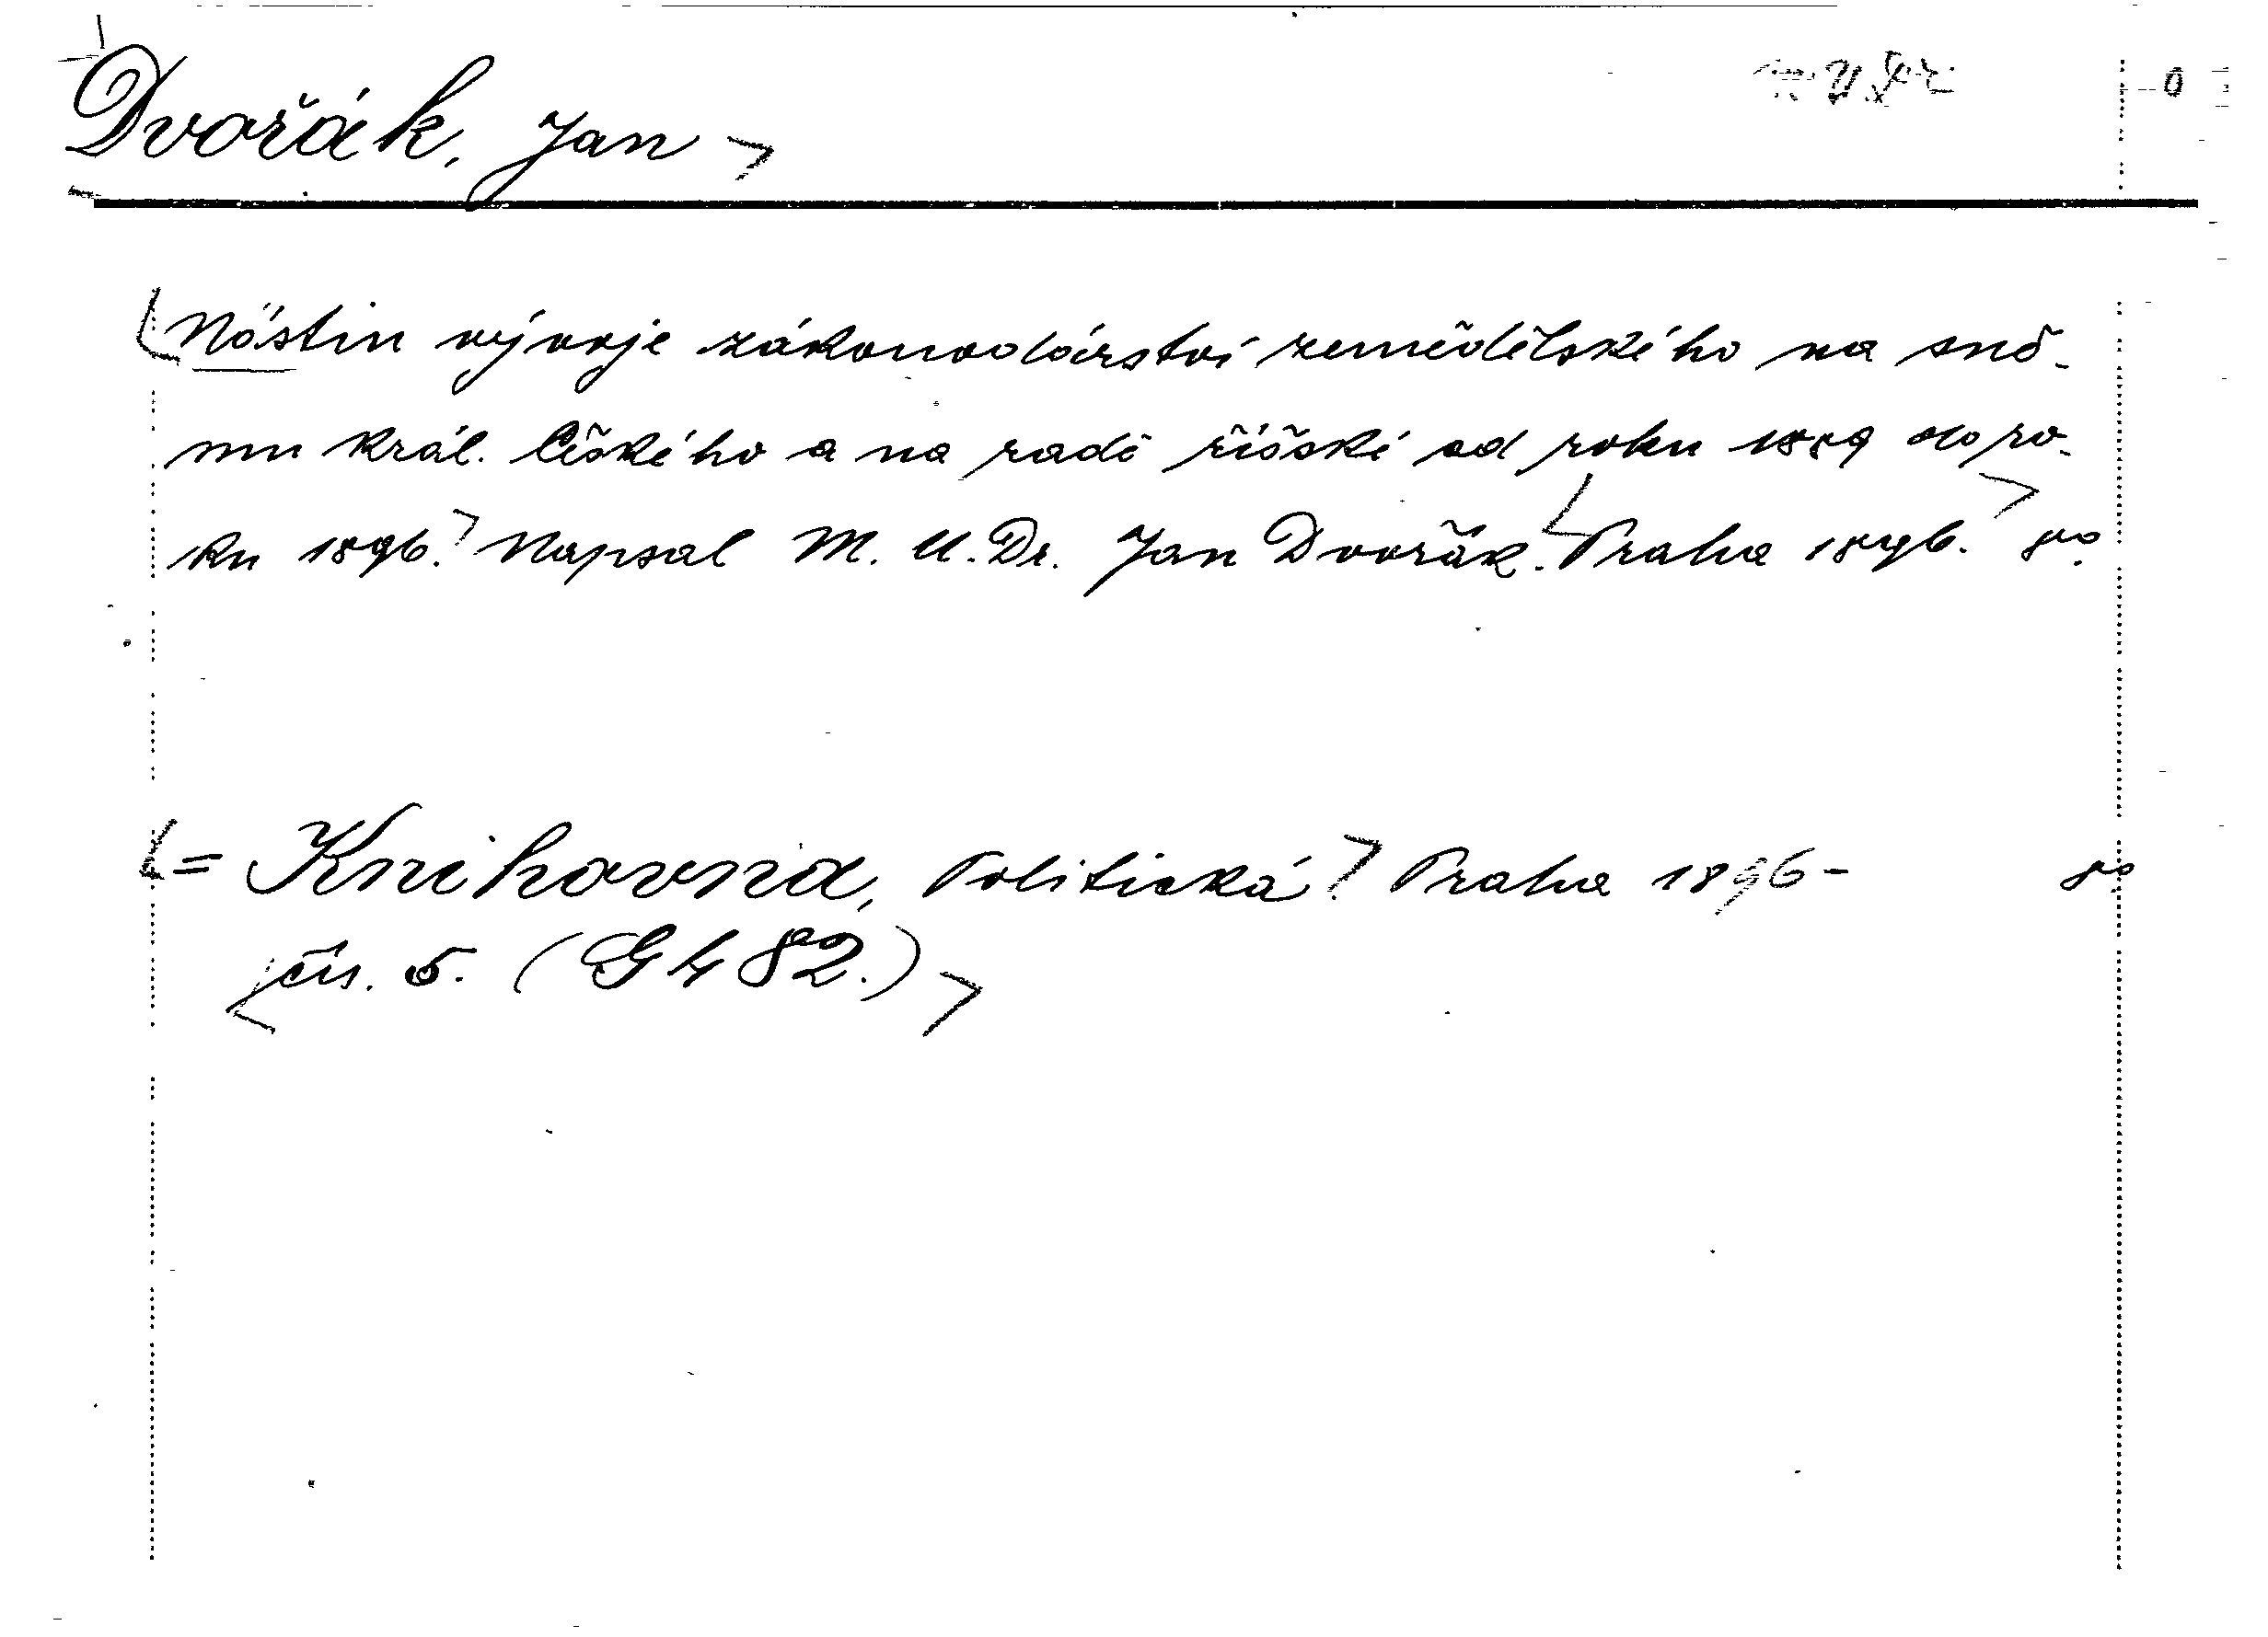 Dvořák, Jan
Nástin vývoje zákonodárství zemědělského na sně-
mu král. Českého a na radě říšské od roku 1889 do ro-
ku 1896. Napsal M. U. Dr. Jan Dvořák. Praha 1896. 8°.
= Knihovna, Politická. Praha 1896- 8°
čís. 5. (G 482.)